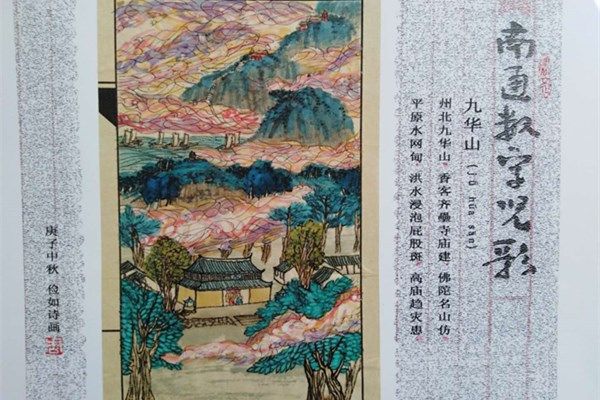 南通数字児歌
九华山
州北九华山·香客齐壘寺庙建·佛陀名山仿
平原水网甸·洪水浸泡屁股斑·高庙趋灾患·
庚子中秋 俭如诗画